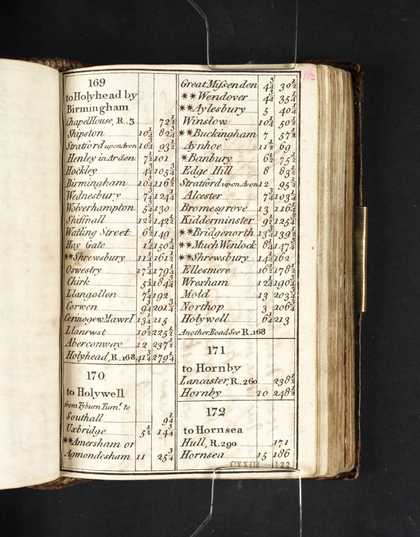 169
to Holyhead by
Birmingham
Chapel House, R. 3 72
Shipston 10 82
Stratford upon Avon 93
Henley in Arden 7 101
Hockley 4 105
Birmingham 10 116
Wednesbury 7 124
Wolverhampton 5 130
Shiffnall 12 142
Watling Street 6 149
Hay Gate 1 150
**Shrewsbury 11 161
Oswestry 17 179
Chirk 5 184
Llangollen 7 192
Corwen 9 201
Cernioge Mawr 13 215
Llanrwst 10 225
Aberconway 12 237
Holyhead, R. 168 41 279
170
to Holywell
from Tyburn Turn. to
Southall 9
Uxbridge 5 14
**Amersham or
Agmondesham 11 25
Great Missenden 4 30
**Wendover 4 35
**Aylesbury 5 40
Winslow 10 50
**Buckingham 7 57
Aynhoe 11 69
*Banbury 6 75
Edge Hill 8 83
Stratford upon Avon 12 95
Alcester 7 103
Bromesgrove 13 116
Kidderminster 9 125
**Bridgenorth 13 139
**Much Wenlock 8 147
**Shrewsbury 14 162
Ellesmere 16 178
Wrexham 12 190
Mold 13 203
Northop 3 206
Holywell 6 213
Another Road See R. 168
171
to Hornby
Lancaster, R. 260 238
Hornby 10 248
172
to Hornsea
Hull, R. 290 171
Hornsea 15 186